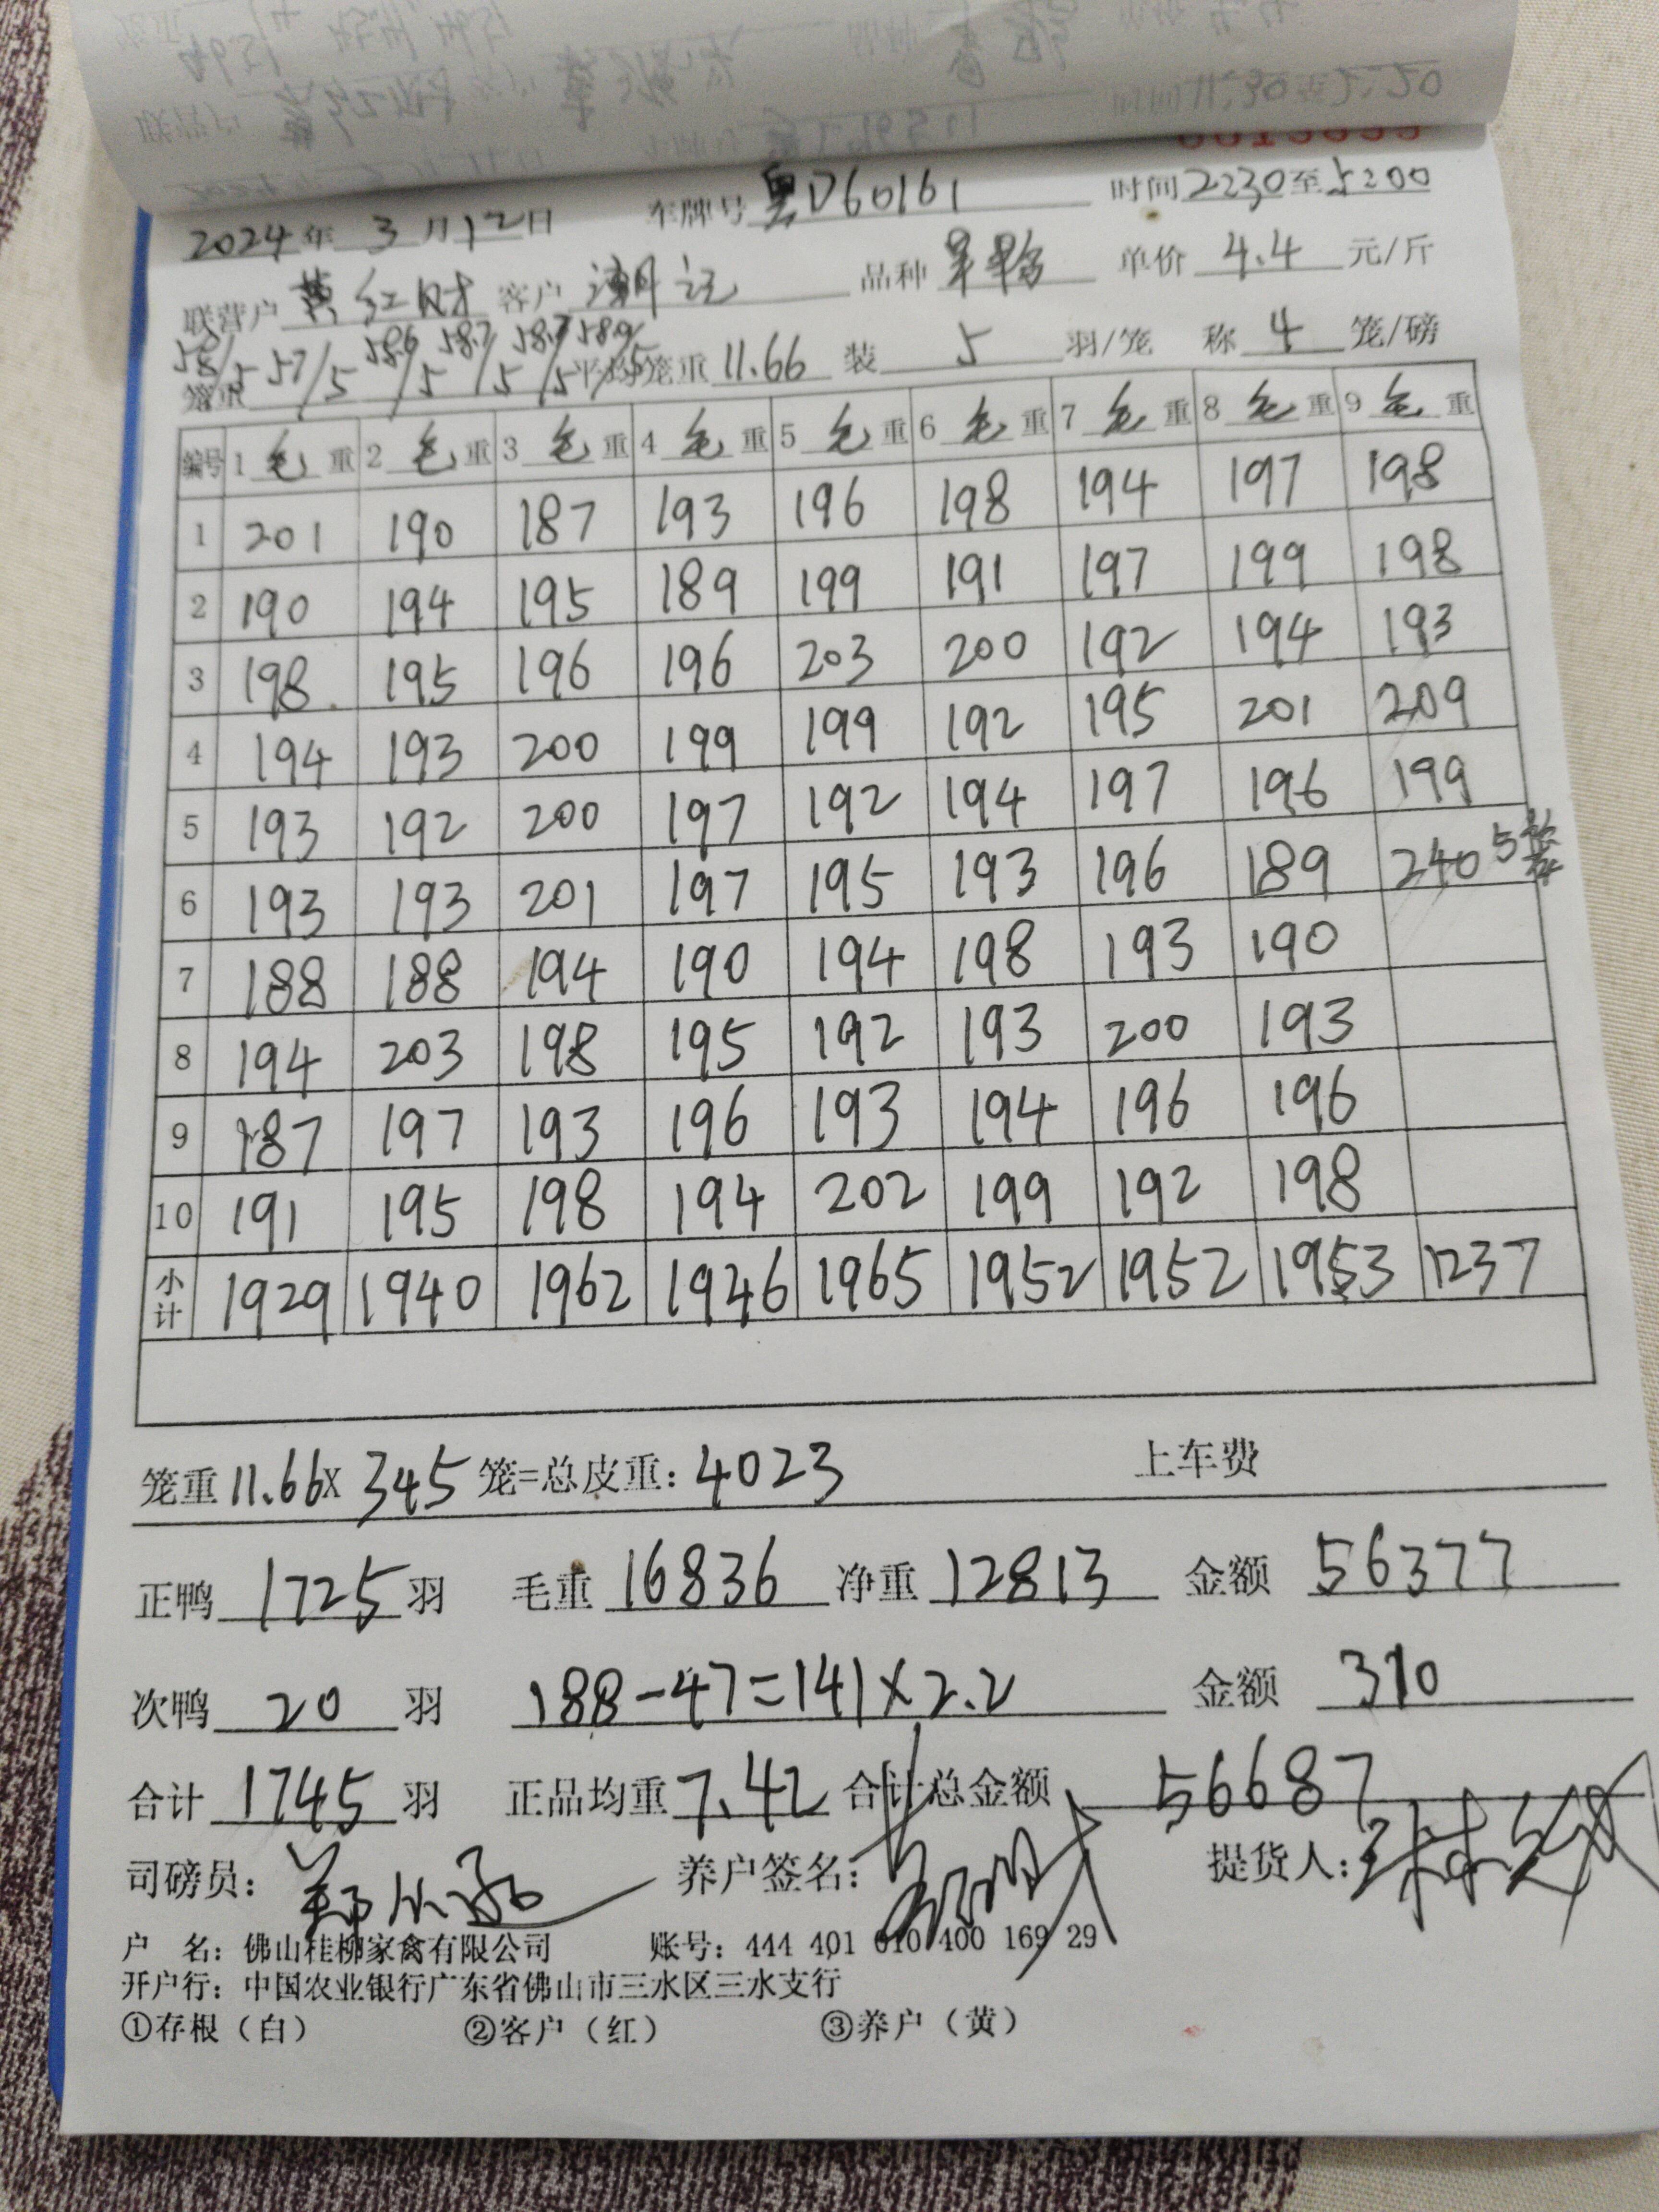 2024年 3月12日 车牌号 粤D60161 时间 2230至5200
联营户 黄红财 客户 潮记 品种 单价 4.4 元/斤
笼重 58/5 57/5 58.6/5 58.7/5 58.7/5 58.9/5 平均笼重 11.66 装 5 羽/笼 称 4 笼/磅
编号 1 毛 重 2 毛 重 3 毛 重 4 毛 重 5 毛 重 6 毛 重 7 毛 重 8 毛 重 9 毛 重
1 201 190 187 193 196 198 194 197 198
2 190 194 195 189 199 191 197 199 198
3 198 195 196 196 203 200 192 194 193
4 194 193 200 199 199 192 195 201 209
5 193 192 200 197 192 194 197 196 199
6 193 193 201 197 195 193 196 189 240 5笼
7 188 188 194 190 194 198 193 190
8 194 203 198 195 192 193 200 193
9 187 197 193 196 193 194 196 196
10 191 195 198 194 202 199 192 198
小计 1929 1940 1962 1946 1965 1952 1952 1953 1237
笼重 11.66× 345 笼=总皮重: 4023 上车费
正鸭 1725 羽 毛重 16836 净重 12813 金额 56377
次鸭 20 羽 188-47=141×2.2 金额 310
合计 1745 羽 正品均重 7.42 合计总金额 56687
司磅员: 养户签名: 提货人:
户 名: 佛山桂柳家禽有限公司 账号: 444 401 010 400 169 29
开户行: 中国农业银行广东省佛山市三水区三水支行
①存根（白） ②客户（红） ③养户（黄）